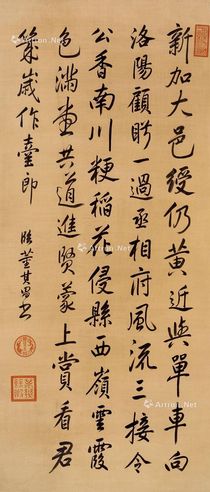 新加大邑綬仍黃近與單車向
洛陽顧眄一過丞相府風流三接令
公香南川粳稻花侵縣西嶺雲霞
色滿堂共道進賢蒙上賞看君
幾歲作臺郎
臨董其昌書